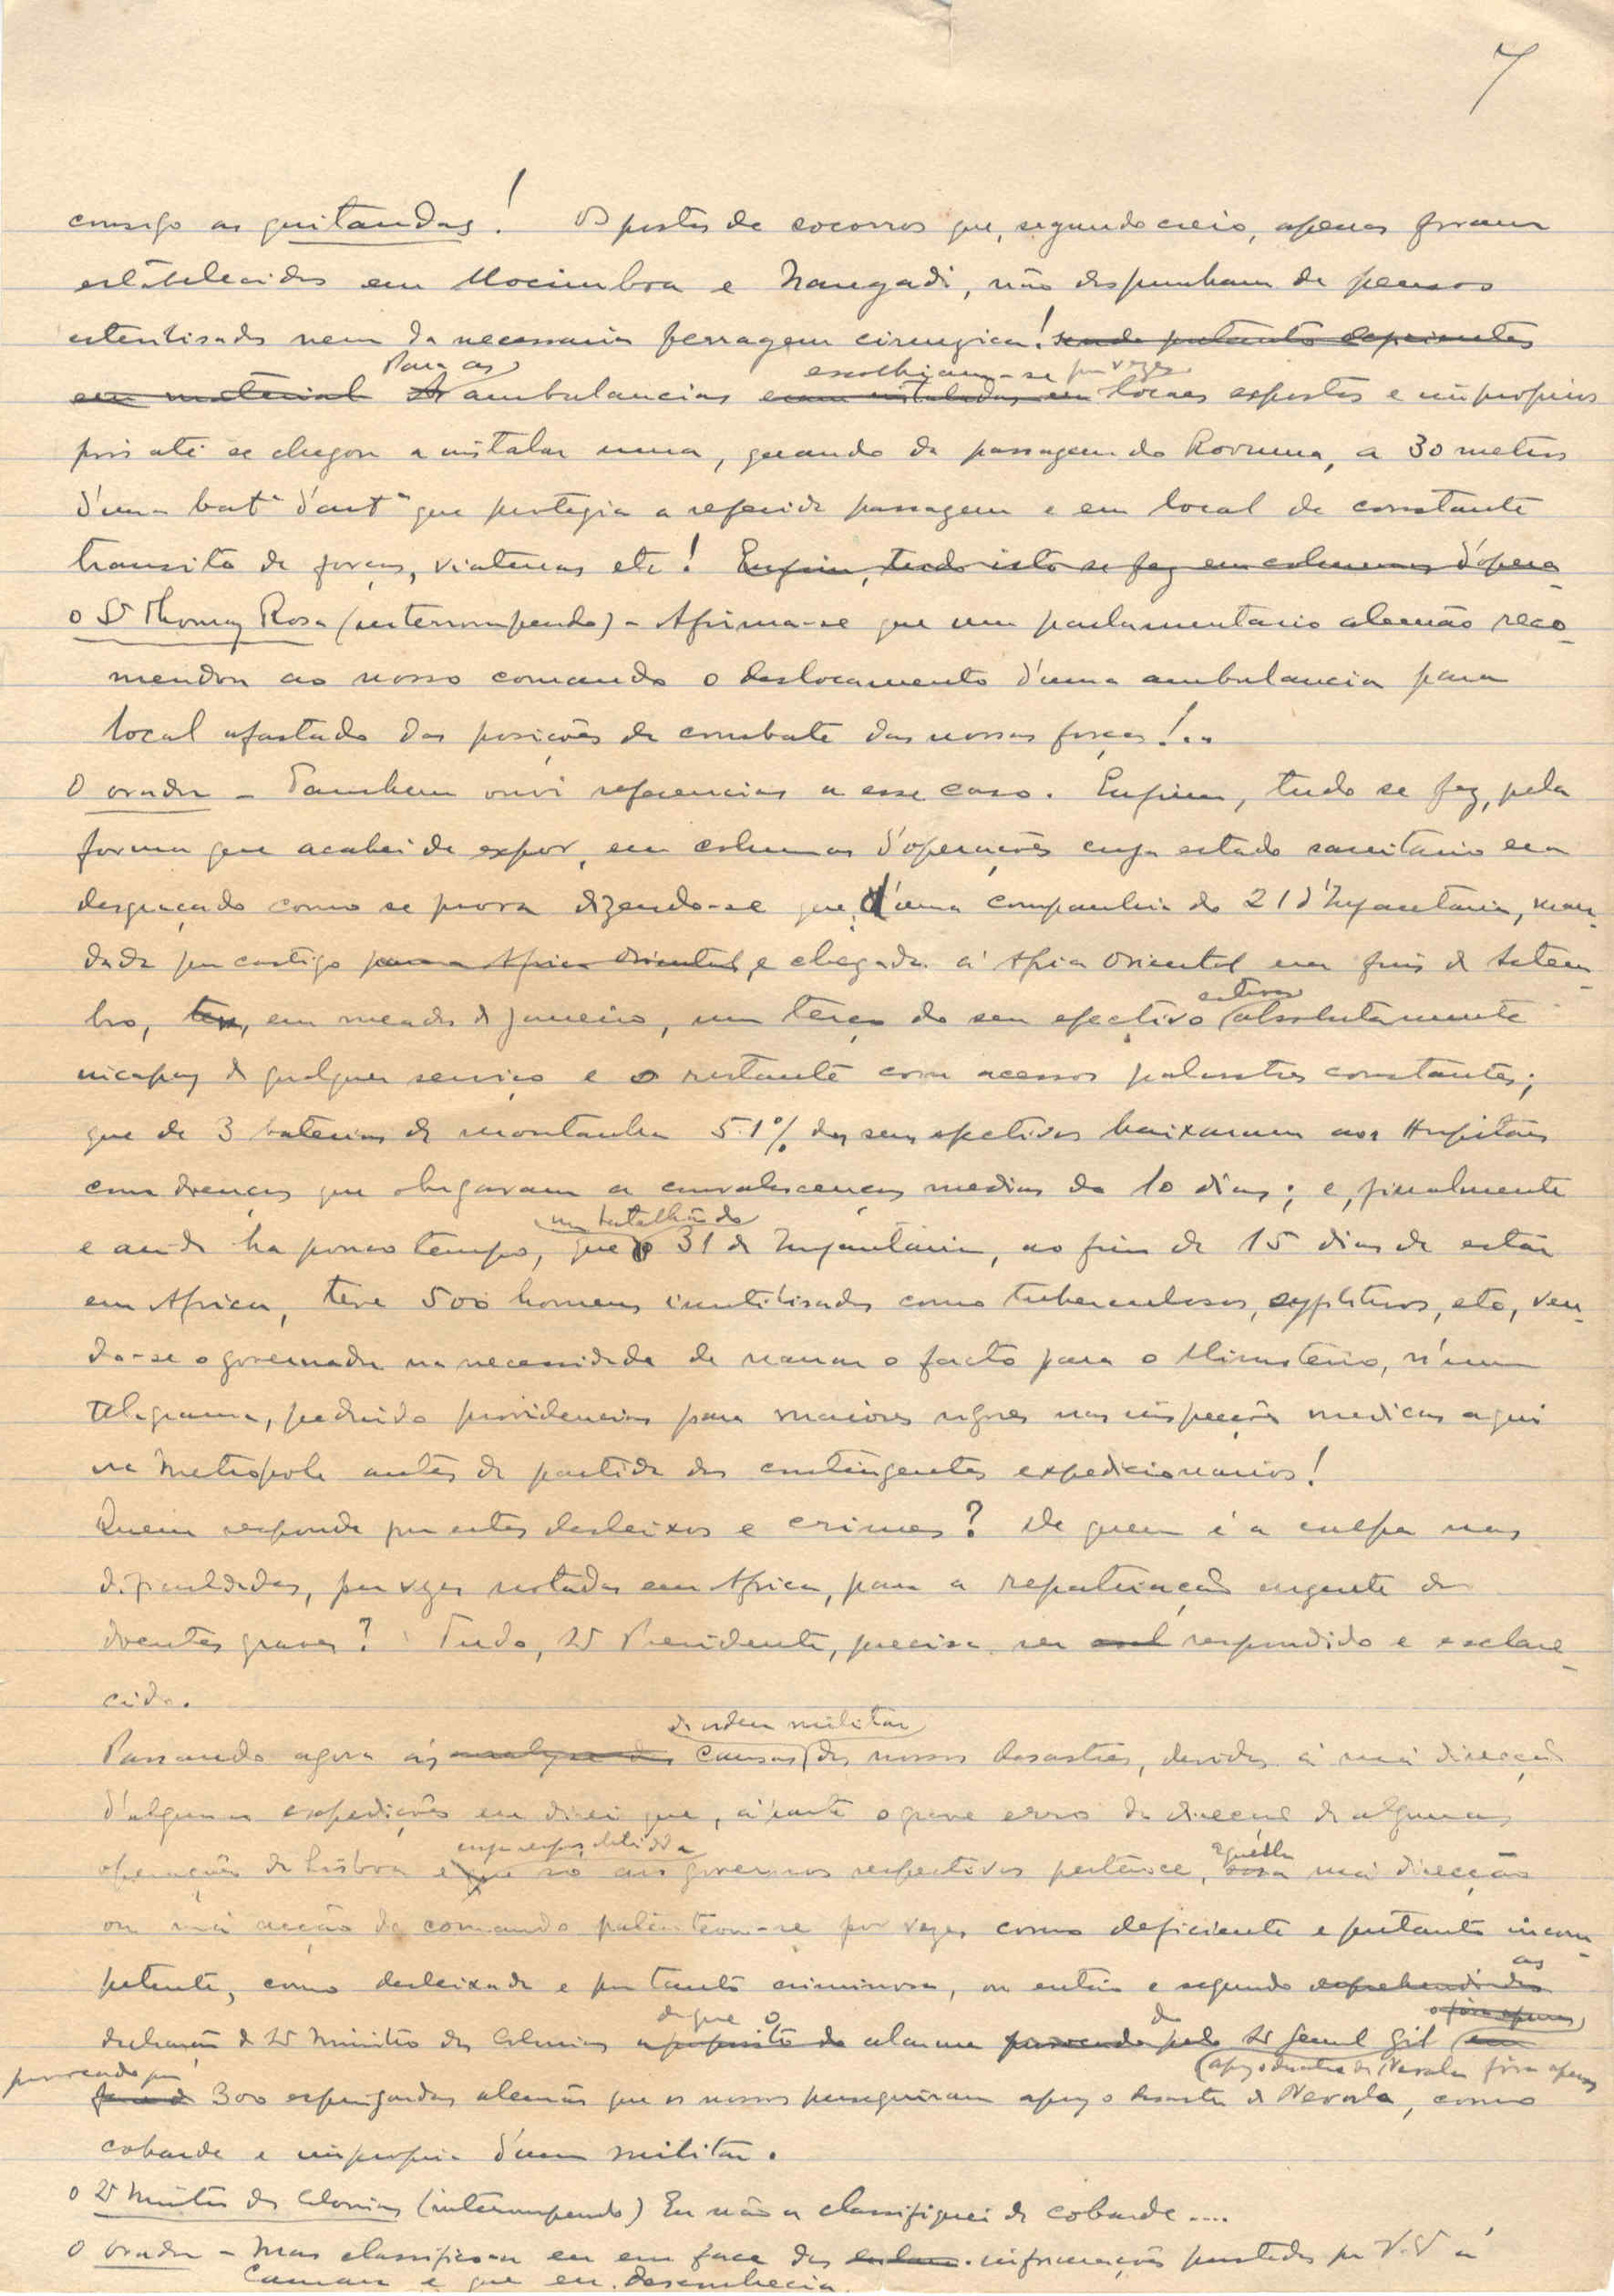 7
comsigo as quitandas! Os postos de socorros que, segundo creio, apenas foram
estabelecidos em Mocimboa e Nangadi, não dispunham de pensos
esterilisados nem da necessaria ferragem cirurgica! sendo portanto deprimentes
Para as escolhiam-se por vezes
em material As ambulancias eram instaladas em locaes expostos e improprios
pois até se chegou a instalar uma, quando da passagem do Rovuma, a 30 metros
d'uma batª d'artª que protegia a referida passagem e em local de constante
transito de forças, viaturas etc! Enfim, tudo isto se fez em columnas d'opera-
O Sr Thomaz Rosa (interrompendo) - Afirma-se que um parlamentario alemão reco-
mendou ao nosso comando o deslocamento d'uma ambulancia para
local afastado das posições de combate das nossas forças!..
O orador - Tambem ouvi referencias a esse caso. Enfim, tudo se fez, pela
forma que acabei de expor, em columnas d'operações cujo estado sanitario era
desgraçado como se prova dizendo-se que, d'uma companhia do 21 d'Infantaria, man-
dada por castigo para a Africa Oriental, e chegada á Africa Oriental em fins de Setem-
estava
bro, tem, em meados de Janeiro, um terço do seu efectivo absolutamente
incapaz de qualquer serviço e o restante com acessos palustres constantes;
que de 3 baterias de montanha 51% dos seus efectivos baixaram aos Hospitaes
com doenças que obrigaram a convalescenças medias de 10 dias; e, finalmente
um batalhão do
e ainda ha pouco tempo, que o 31 de Infantaria, ao fim de 15 dias de estar
em Africa, teve 500 homens inutilisados como tuberculosos, syphiliticos, etc, ven-
do-se o governador na necessidade de narrar o facto para o Ministerio, n'um
telegrama, pedindo providencias para maiores rigores nas inspecções medicas aqui
na Metropole antes da partida dos contingentes expedicionarios!
Quem responde por estes desleixos e crimes? De quem é a culpa nas
dificuldades, por vezes notadas em Africa, para a repatriação urgente de
doentes graves? Tudo, Sr Presidente, precisa ser respondido e esclare-
cido.
de ordem militar
Passando agora ás causas dos nossos desastres, devidos á má direcção
d'algumas expedições eu direi que, á parte o grave erro da direcção de algumas
cuja responsabilidade aquella
operações de Lisboa e que só aos governos respectivos pertence, essa má direcção
ou má acção de comando patenteou-se por vezes como deficiente e portanto incom-
petente, como desleixada e portanto criminosa, ou então e segundo as
de que o do o fôra apenas
declarações do Sr Ministro das Colonias a proposito do alarme provocado pelo Sr General Gil
(após o desastre de Nevala fôra apenas
provocado por
300 espingardas alemãs que os nossos perseguiram após o desastre de Nevala, como
cobarde e impropria d'um militar.
O Sr Ministro das Colonias (interrompendo) Eu não a classifiquei de cobarde ....
O Orador - Mas classifico-a eu em face das informações prestadas por V. Exª á
Camara e que eu desconhecia.